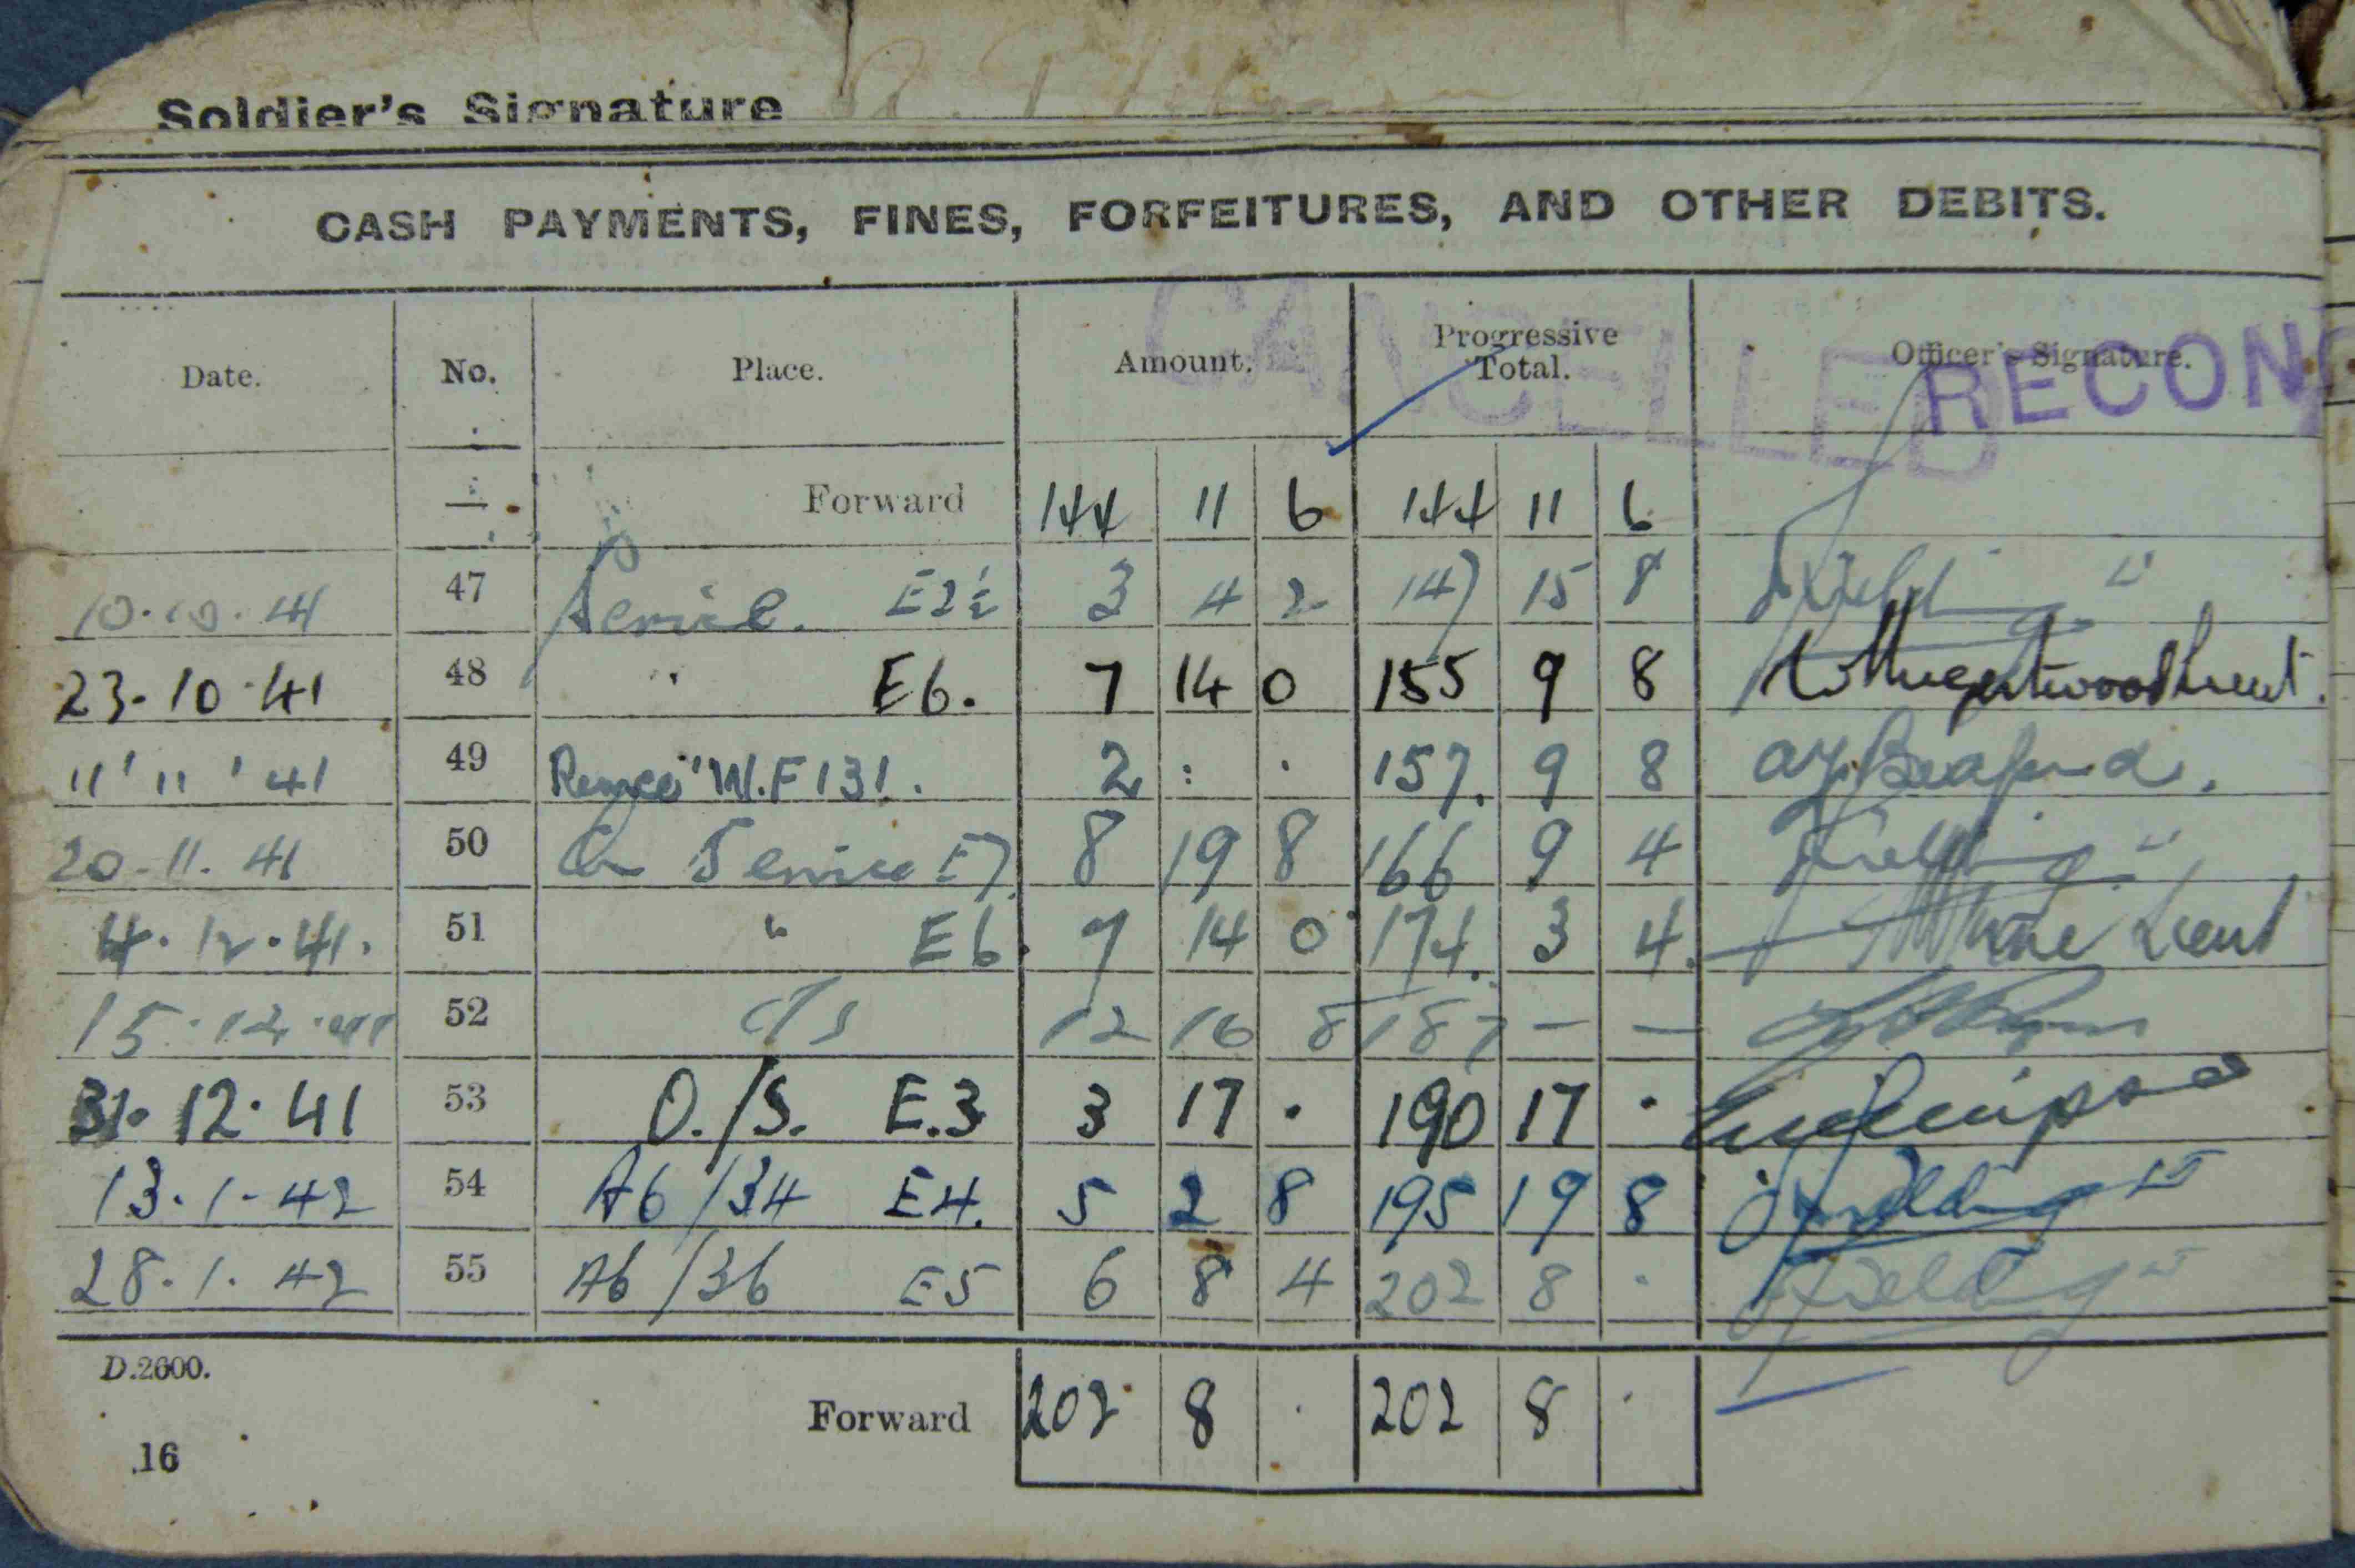 Soldier's Signature
CASH PAYMENTS, FINES, FORFEITURES, AND OTHER DEBITS.
Date. No. Place. Amount. Progressive Total. Officer's Signature.
CANCELLED
RECON
Forward 144 11 6 144 11 6
10.10.41 47 Service. E2½ 3 4 2 147 15 8
23.10.41 48 " E6. 7 14 0 155 9 8
11'11'41 49 W.F 131. 2 : . 157. 9 8
20-11.41 50 On Service E7 8 19 8 166 9 4 Fielding Lt
4.12.41. 51 " E6. 7 14 0 174. 3 4. Lieut
15.12.41 52 O/S 12 16 8 187 — —
31.12.41 53 O./S. E.3 3 17 . 190 17 .
13.1.42 54 A6/34 E4. 5 2 8 195 19 8 Fielding Lt
28.1.42 55 A6/36 E5 6 8 4 202 8 . Fielding Lt
D.2600.
Forward 202 8 . 202 8 .
16